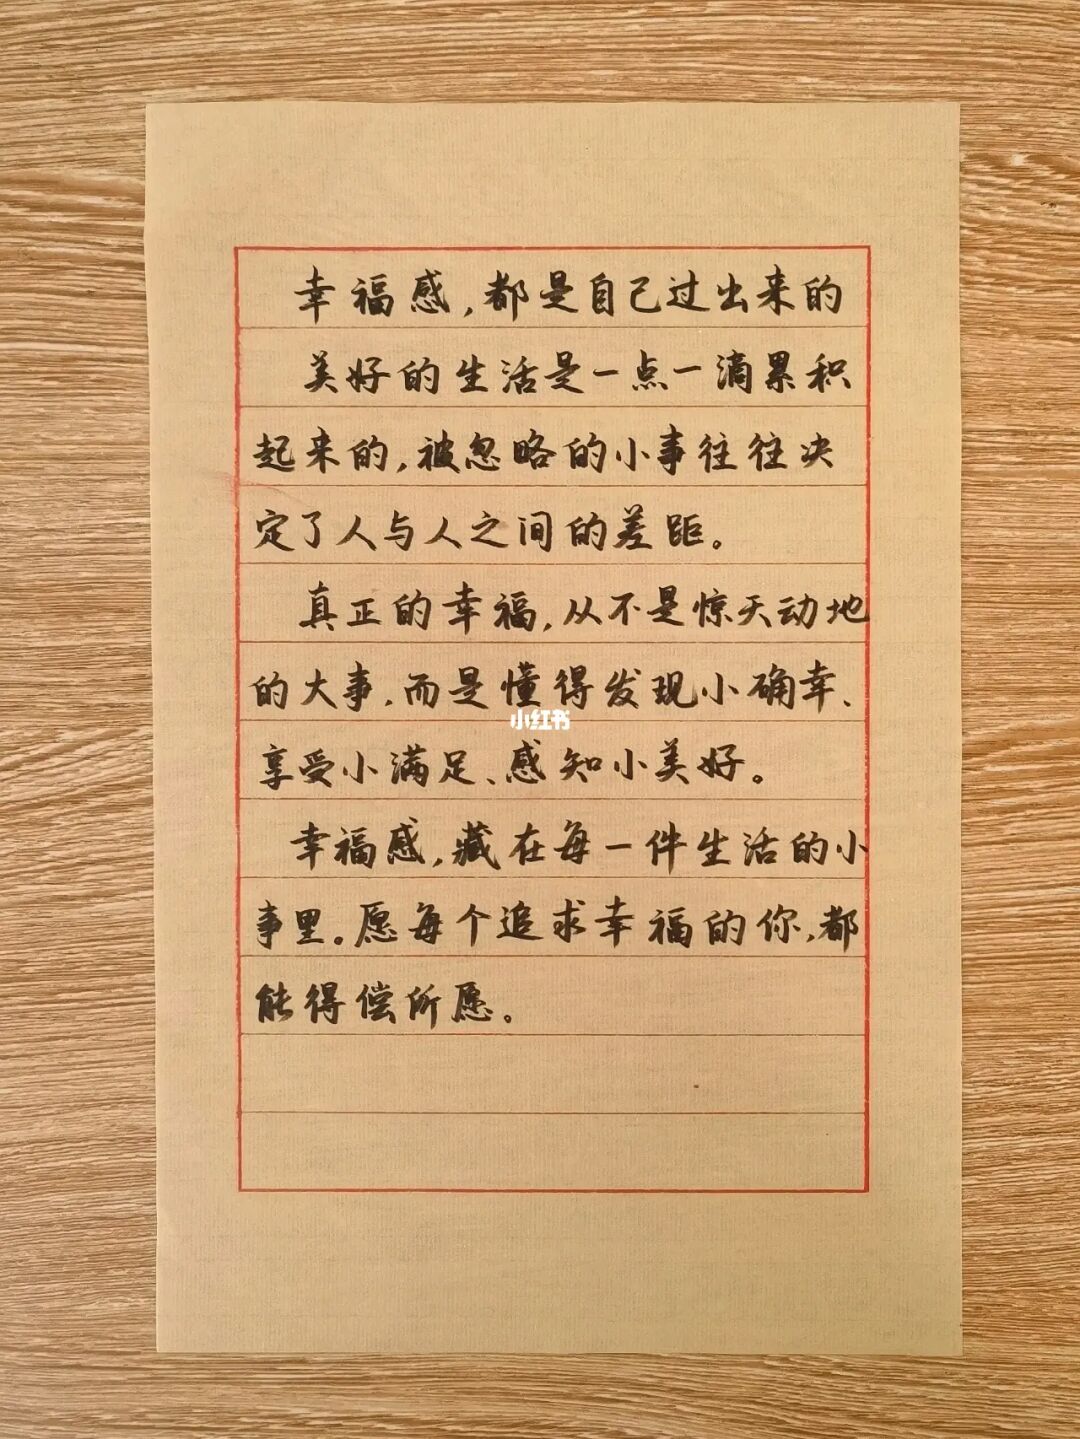 幸福感,都是自己过出来的
美好的生活是一点一滴累积
起来的,被忽略的小事往往决
定了人与人之间的差距。
真正的幸福,从不是惊天动地
的大事,而是懂得发现小确幸、
小红书
享受小满足、感知小美好。
幸福感,藏在每一件生活的小
事里。愿每个追求幸福的你,都
能得偿所愿。